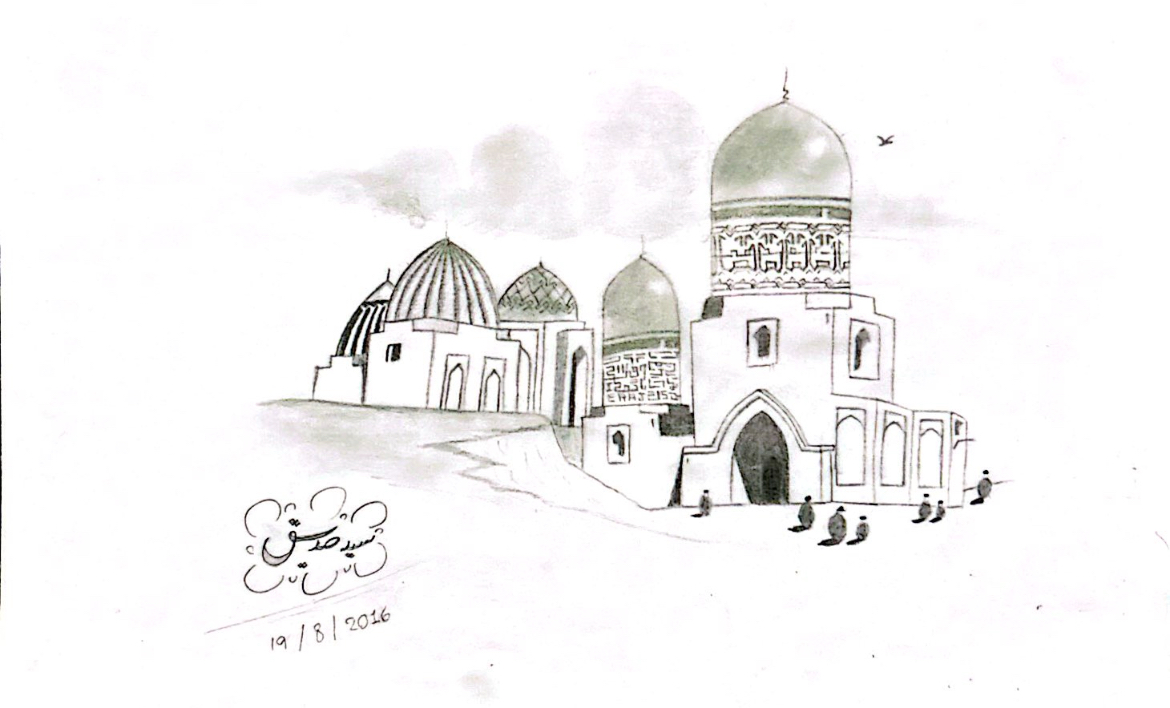 سید صدیق
19/8/2016